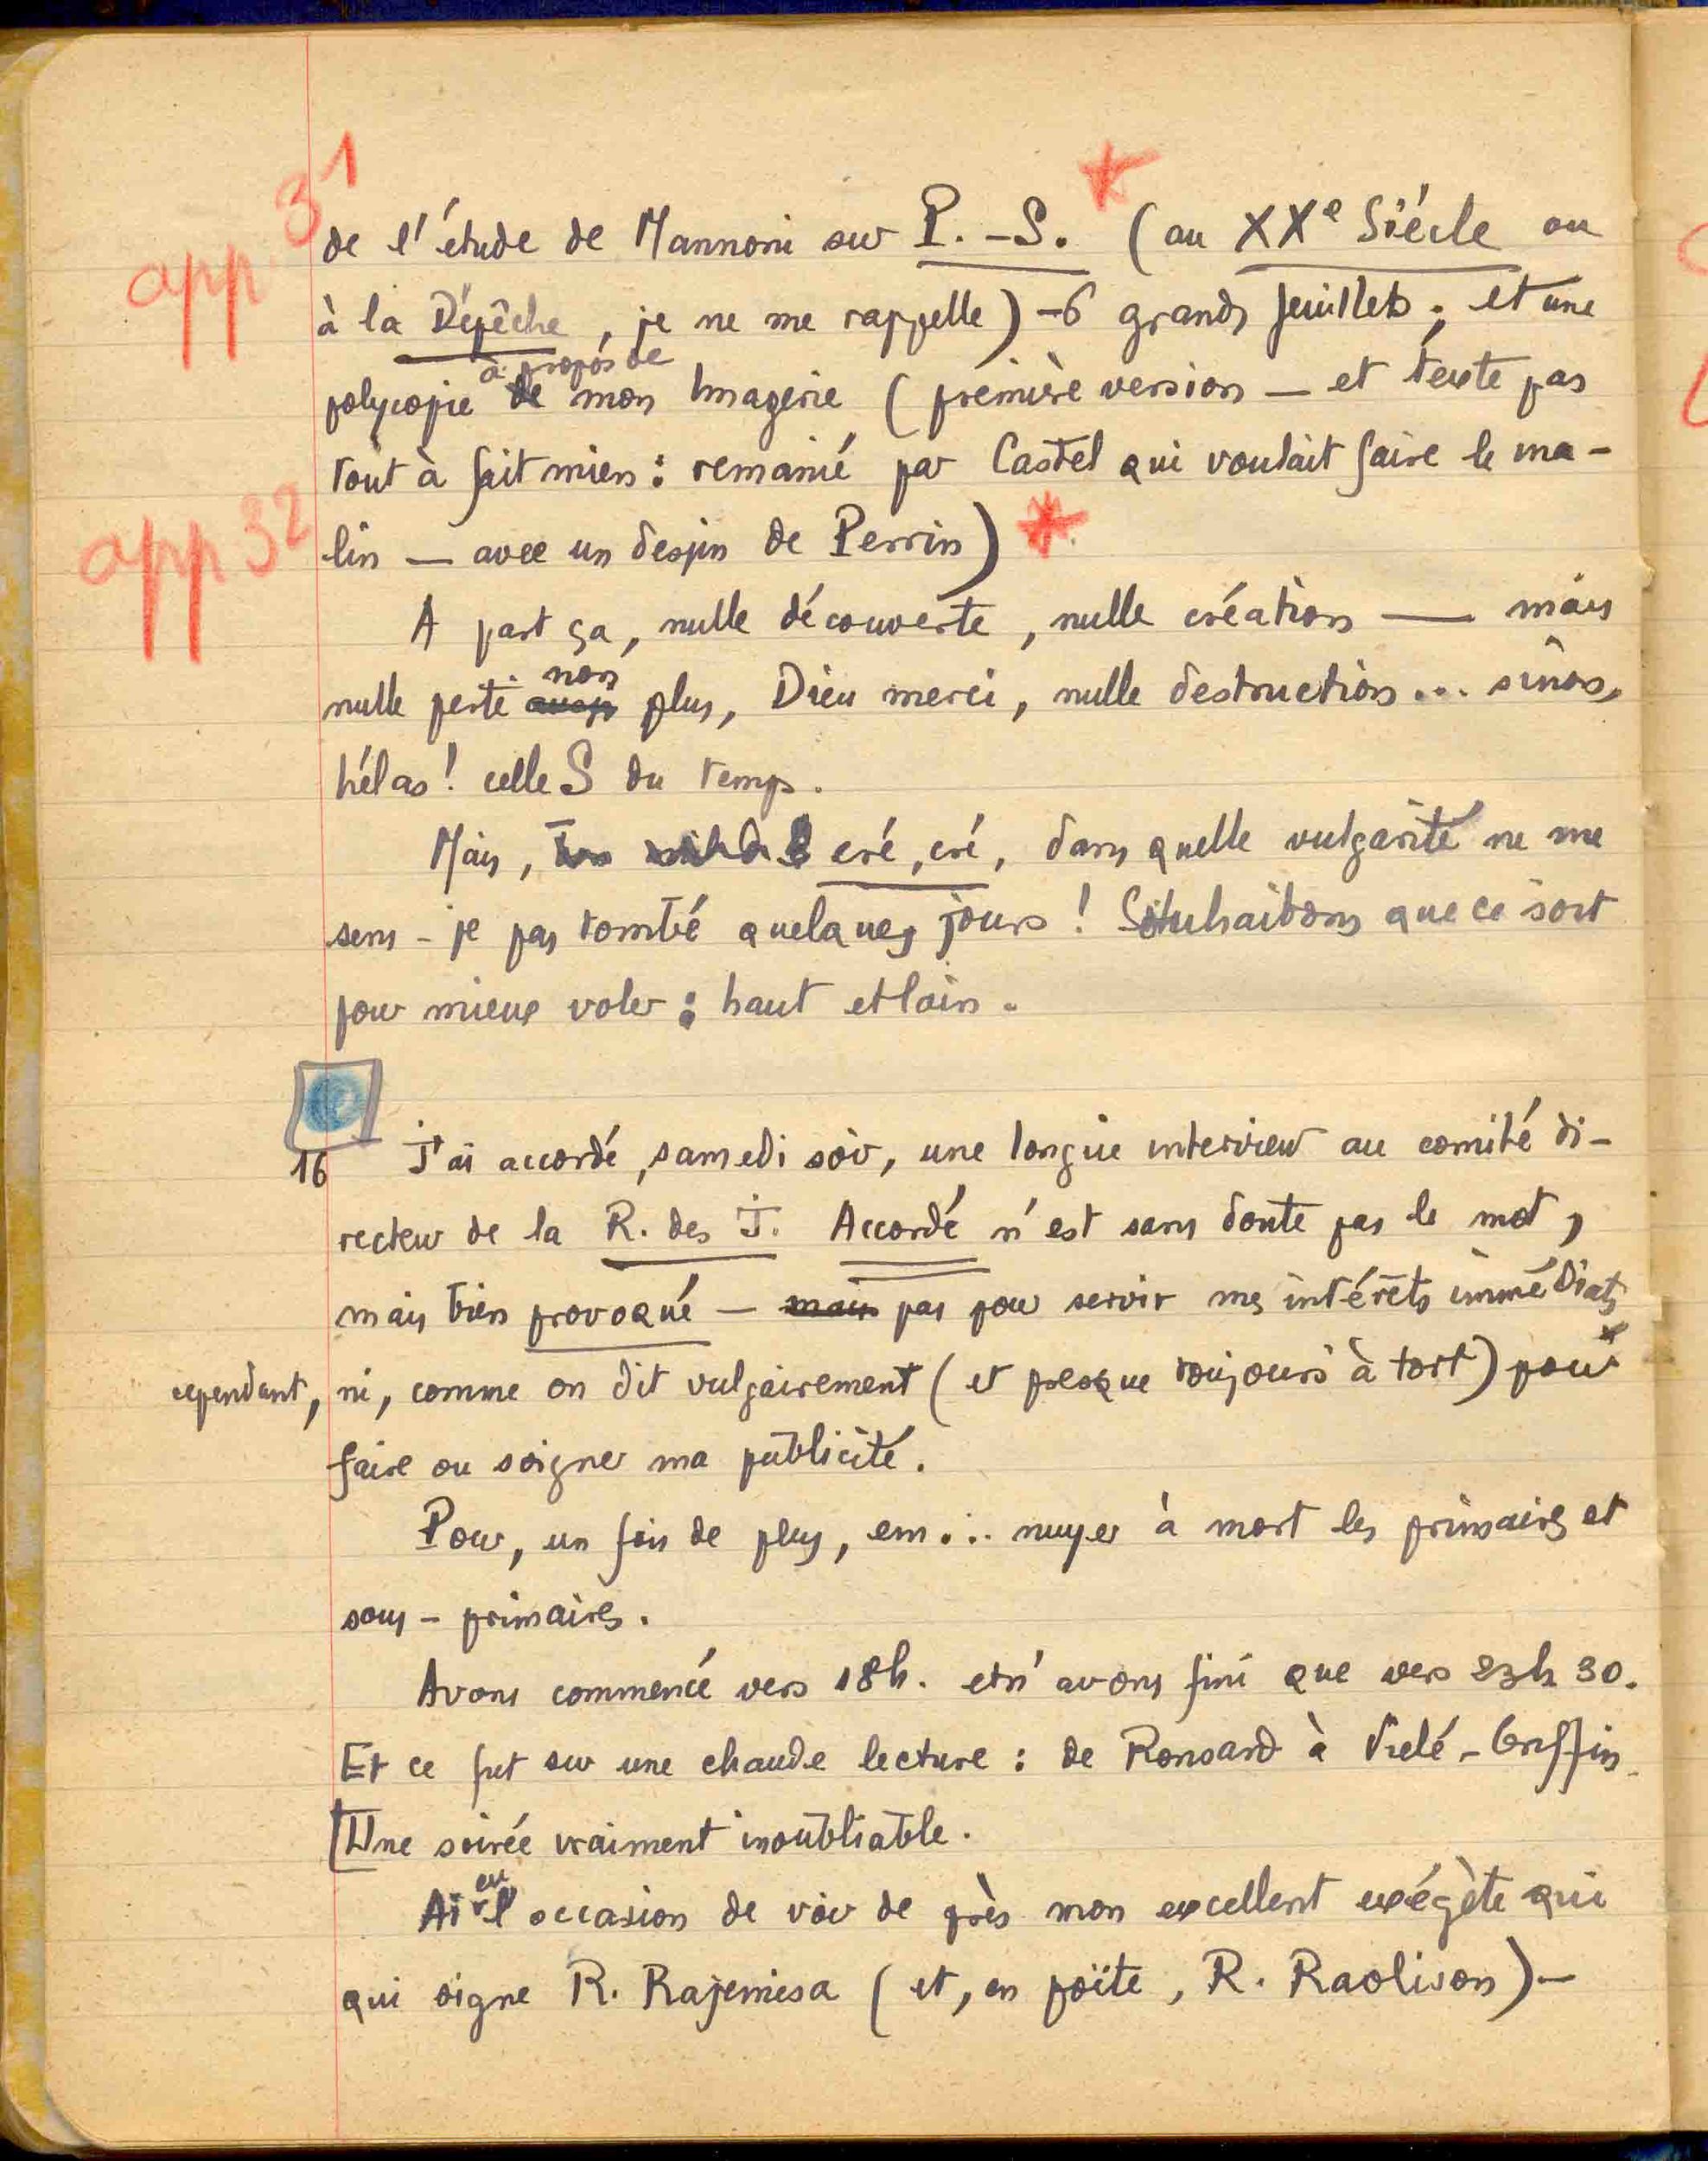 app 31
de l'étude de Mannoni sur P.-S. * (au XXe Siécle ou
à la Dépêche, je ne me rappelle) - 6 grands feuillets ; et une
à propos de
polycopie de mon Imagerie (première version — et texte pas
tout à fait mien : remanié par Castel qui voulait faire le ma-
app 32
lin — avec un dessin de Perrin) *
A part ça, nulle découverte, nulle création — mais
non
nulle perte aussi plus, Dieu merci, nulle destruction... sinon,
hélas! celleS du temps.
Mais, cré, cré, dans quelle vulgarité ne me
sens-je pas tombé quelques jours ! Souhaitons que ce soit
pour mieux voler : haut et loin.
16 J'ai accordé, samedi soir, une longue interview au comité di-
recteur de la R. des J. Accordé n'est sans doute pas le mot,
mais bien provoqué — mais pas pour servir mes intérêts immédiats
cependant, ni, comme on dit vulgairement (et presque toujours à tort) pour
faire ou soigner ma publicité.
Pour, un fois de plus, em... nuyer à mort les primaires et
sous-primaires.
Avons commencé vers 18h. et n'avons fini que vers 23h 30.
Et ce fut sur une chaude lecture : de Ronsard à Vielé-Griffin.
[Une soirée vraiment inoubliable.
eu
Ai l'occasion de voir de près mon excellent exégète qui
qui signe R. Rajemisa (et, en poïte, R. Raolison) —